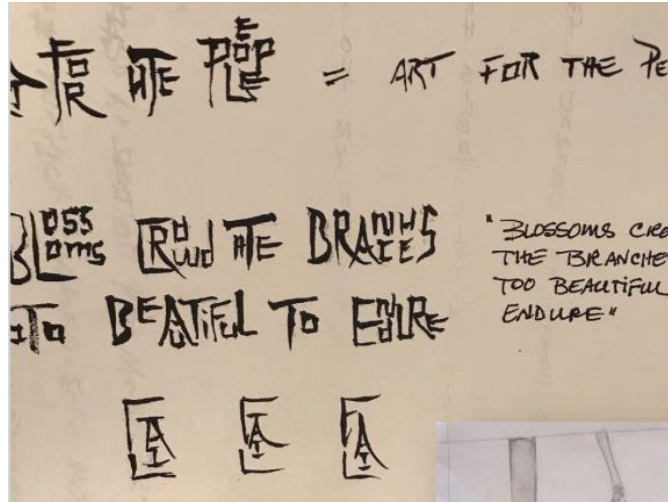 FOR THE PEOPLE = ART FOR THE PE
BLOSSOMS CROWD THE BRANCHES
TO BEAUTIFUL TO ENDURE
"BLOSSOMS CRO
THE BRANCHE
TOO BEAUTIFUL
ENDURE"